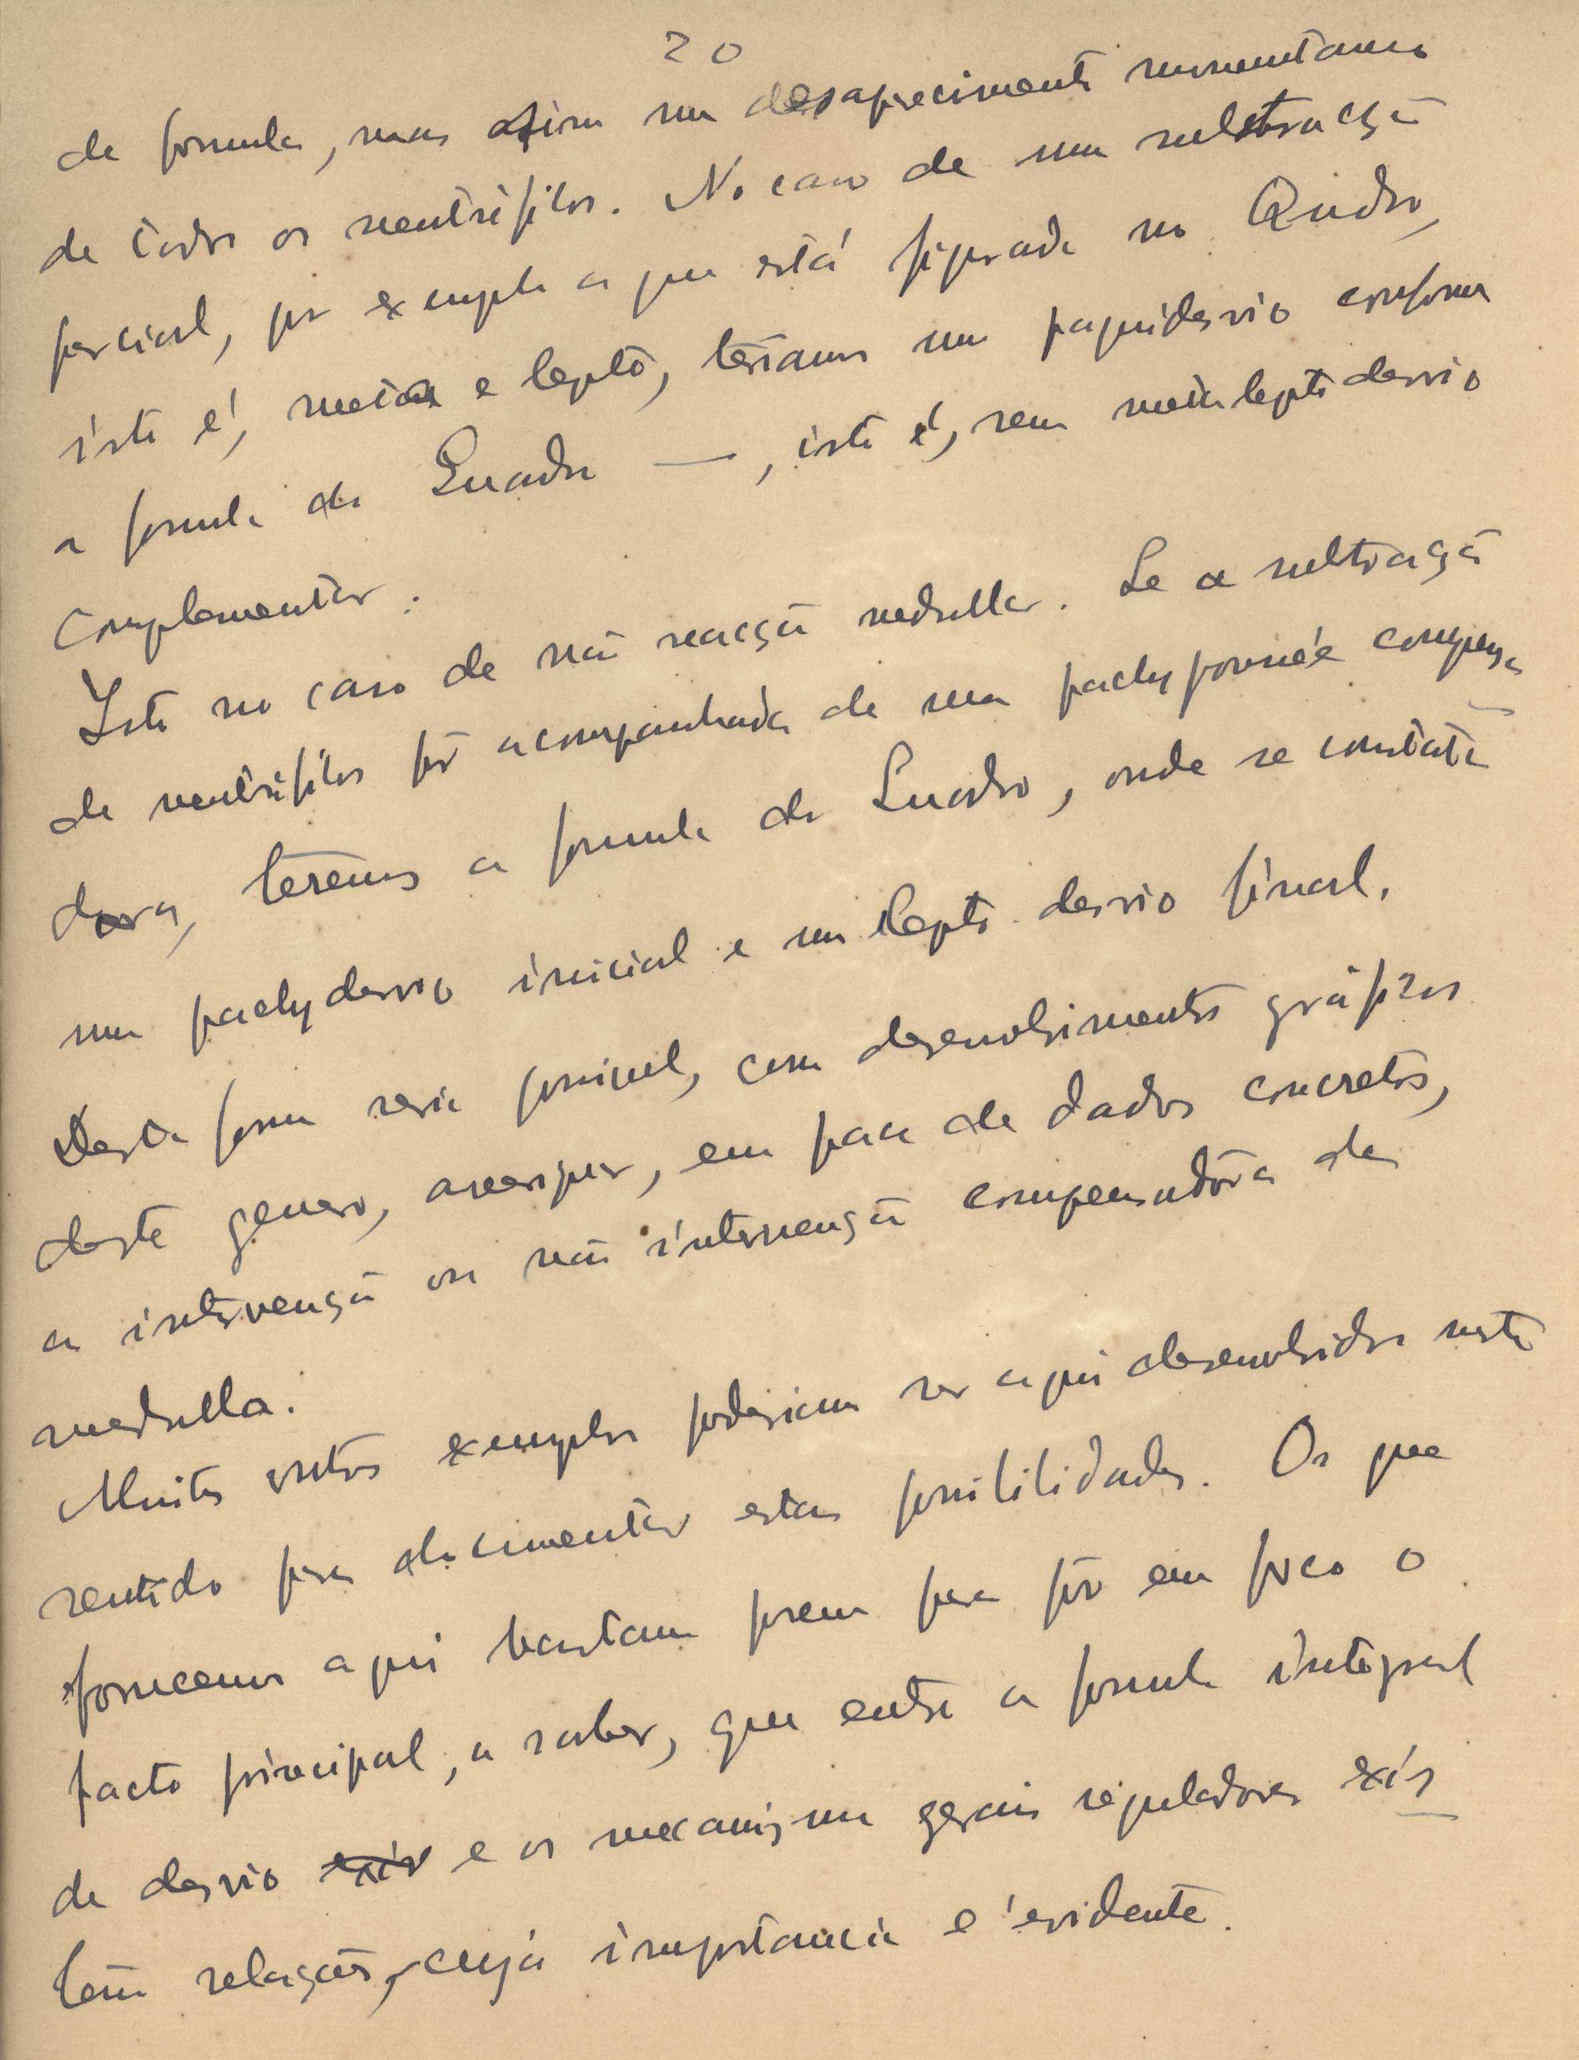 20
de formula, mas assim um desaparecimento momentaneo
de todos os neutrófilos. No caso de uma substracção
parcial, por exemplo a que está figurada no Quadro,
isto é, meta e lepto, teriamos um paquidesvio conforme
a formula do Quadro —, isto é, sem metaleptodesvio
complementar.
Isto no caso de não reacção medullar. Se a subtracção
de neutrófilos fôr acompanhada de uma pachypoiese compensa
dora, teremos a formula do Quadro, onde se constata
um pachydesvio inicial e um lepto desvio final.
Desta forma seria possivel, com desenvolvimentos gráficos
deste genero, assegurar, em face de dados concretos,
a intervenção ou não intervenção compensadora da
medulla.
Muitos outros exemplos poderiam ser aqui desenvolvidos neste
sentido para documentar estas possibilidades. Os que
fornecemos aqui bastam porem para pôr em foco o
facto principal, a saber, que entre a formula integral
de desvio e os mecanismos gerais reguladores exis
tem relações, cuja importancia é evidente.